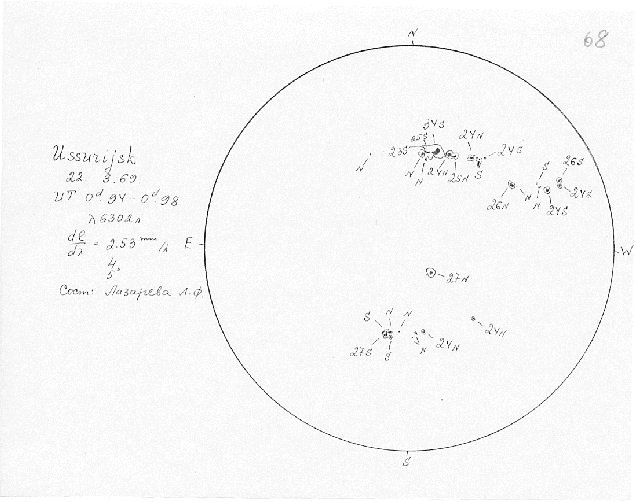 68
N
Ussurijsk
22. 3.69
UT 0d 94 - 0d 98
λ6302Å
dl/dλ = 2.53 mm/Å
4,
5,
Сост. Лазарева Л.Ф
E
W
S
34S
25S
23S
24N
24S
N
N
N
24N
25N
S
S
26S
24S
26N
N
N
24S
27N
S
N
N
24N
27S
S
N
24N